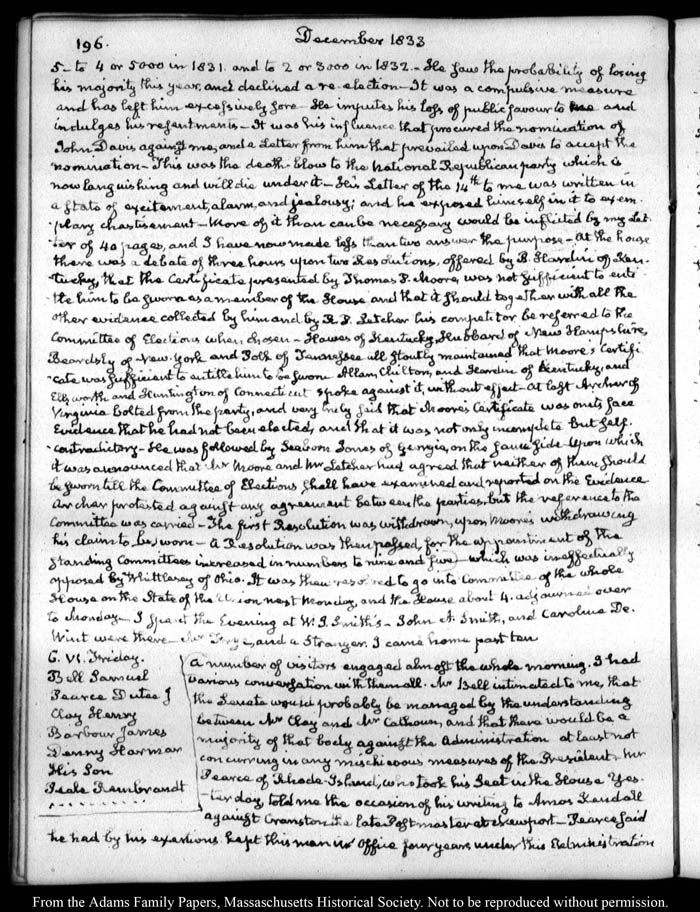 196.
December 1833
5- to 4 or 5000 in 1831. and to 2 or 3000 in 1832 - He saw the probability of losing
his majority this year, and declined a re-election - It was a compulsive measure
and has left him excessively sore - He imputes his loss of public favour to me and
indulges his resentments - It was his influence that procured the nomination of
John Davis against me, and a Letter from him that prevailed upon Davis to accept the
nomination - This was the death-blow to the National Republican party which is
now languishing and will die under it - His Letter of the 14th. to me was written in
a state of excitement, alarm, and jealousy; and he exposed himself in it to exem-
plary chastisement - More of it than can be necessary would be inflicted by my Let-
ter of 40 pages, and I have now made less than two answer the purpose - At the house
there was a debate of three hours upon two Resolutions, offered by B. Hardin of Ken-
tucky, that the Certificate presented by Thomas P. Moore, was not sufficient to enti-
tle him to be sworn as a member of the House and that it should together with all the
other evidence collected by him and by R. P. Letcher his competitor be referred to the
Committee of Elections when chosen - Hawes of Kentucky, Hubbard of New Hampshire,
Beardsley of New-York and Polk of Tennessee all stoutly maintained that Moore's Certifi-
cate was sufficient to entitle him to be sworn Allan, Chilton, and Hardin of Kentucky, and
Ellsworth and Huntington of Connecticut spoke against it, without effect - At last Archer of
Virginia bolted from the party, and very truly said that Moore's Certificate was on its face
Evidence that he had not been elected, and that it was not only incomplete but self-
contradictory - He was followed by Seaborn Jones of Georgia, on the same side - Upon which
it was announced that Mr Moore and Mr Letcher had agreed that neither of them should
be sworn till the Committee of Elections shall have examined and reported on the Evidence
Archer protested against any agreement between the parties, but the reference to the
Committee was carried - The first Resolution was withdrawn, upon Moore's withdrawing
his claim to be sworn - A Resolution was then passed, for the appointment of the
standing Committees increased in numbers to nine and five - which was ineffectually
opposed by Whittlesey of Ohio. It was then resolved to go into Committee of the whole
House on the State of the Union next Monday, and the House about 4. adjourned over
to Monday - I spent the Evening at W. S. Smith's - John A. Smith, and Caroline De-
Wint were there - Mr Frye, and a Stranger. I came home past ten
6. VI. Friday.
Bell Samuel
Pearce Dutee J
Clay Henry
Barbour James
Denny Harmar
His Son
Peale Rembrandt
A number of visitors engaged almost the whole morning. I had
various conversation with them all. Mr Bell intimated to me, that
the Senate would probably be managed by the understanding
between Mr Clay and Mr Calhoun, and that there would be a
majority of that body against the Administration at least not
concurring in any mischievous measures of the President. Mr
Pearce of Rhode-Island, who took his Seat in the House Yes-
terday, told me the occasion of his writing to Amos Kendall
against Cranston the late Postmaster at Newport - Pearce said
he had by his exertions kept this man in Office four years under this Administration
From the Adams Family Papers, Massachusetts Historical Society. Not to be reproduced without permission.